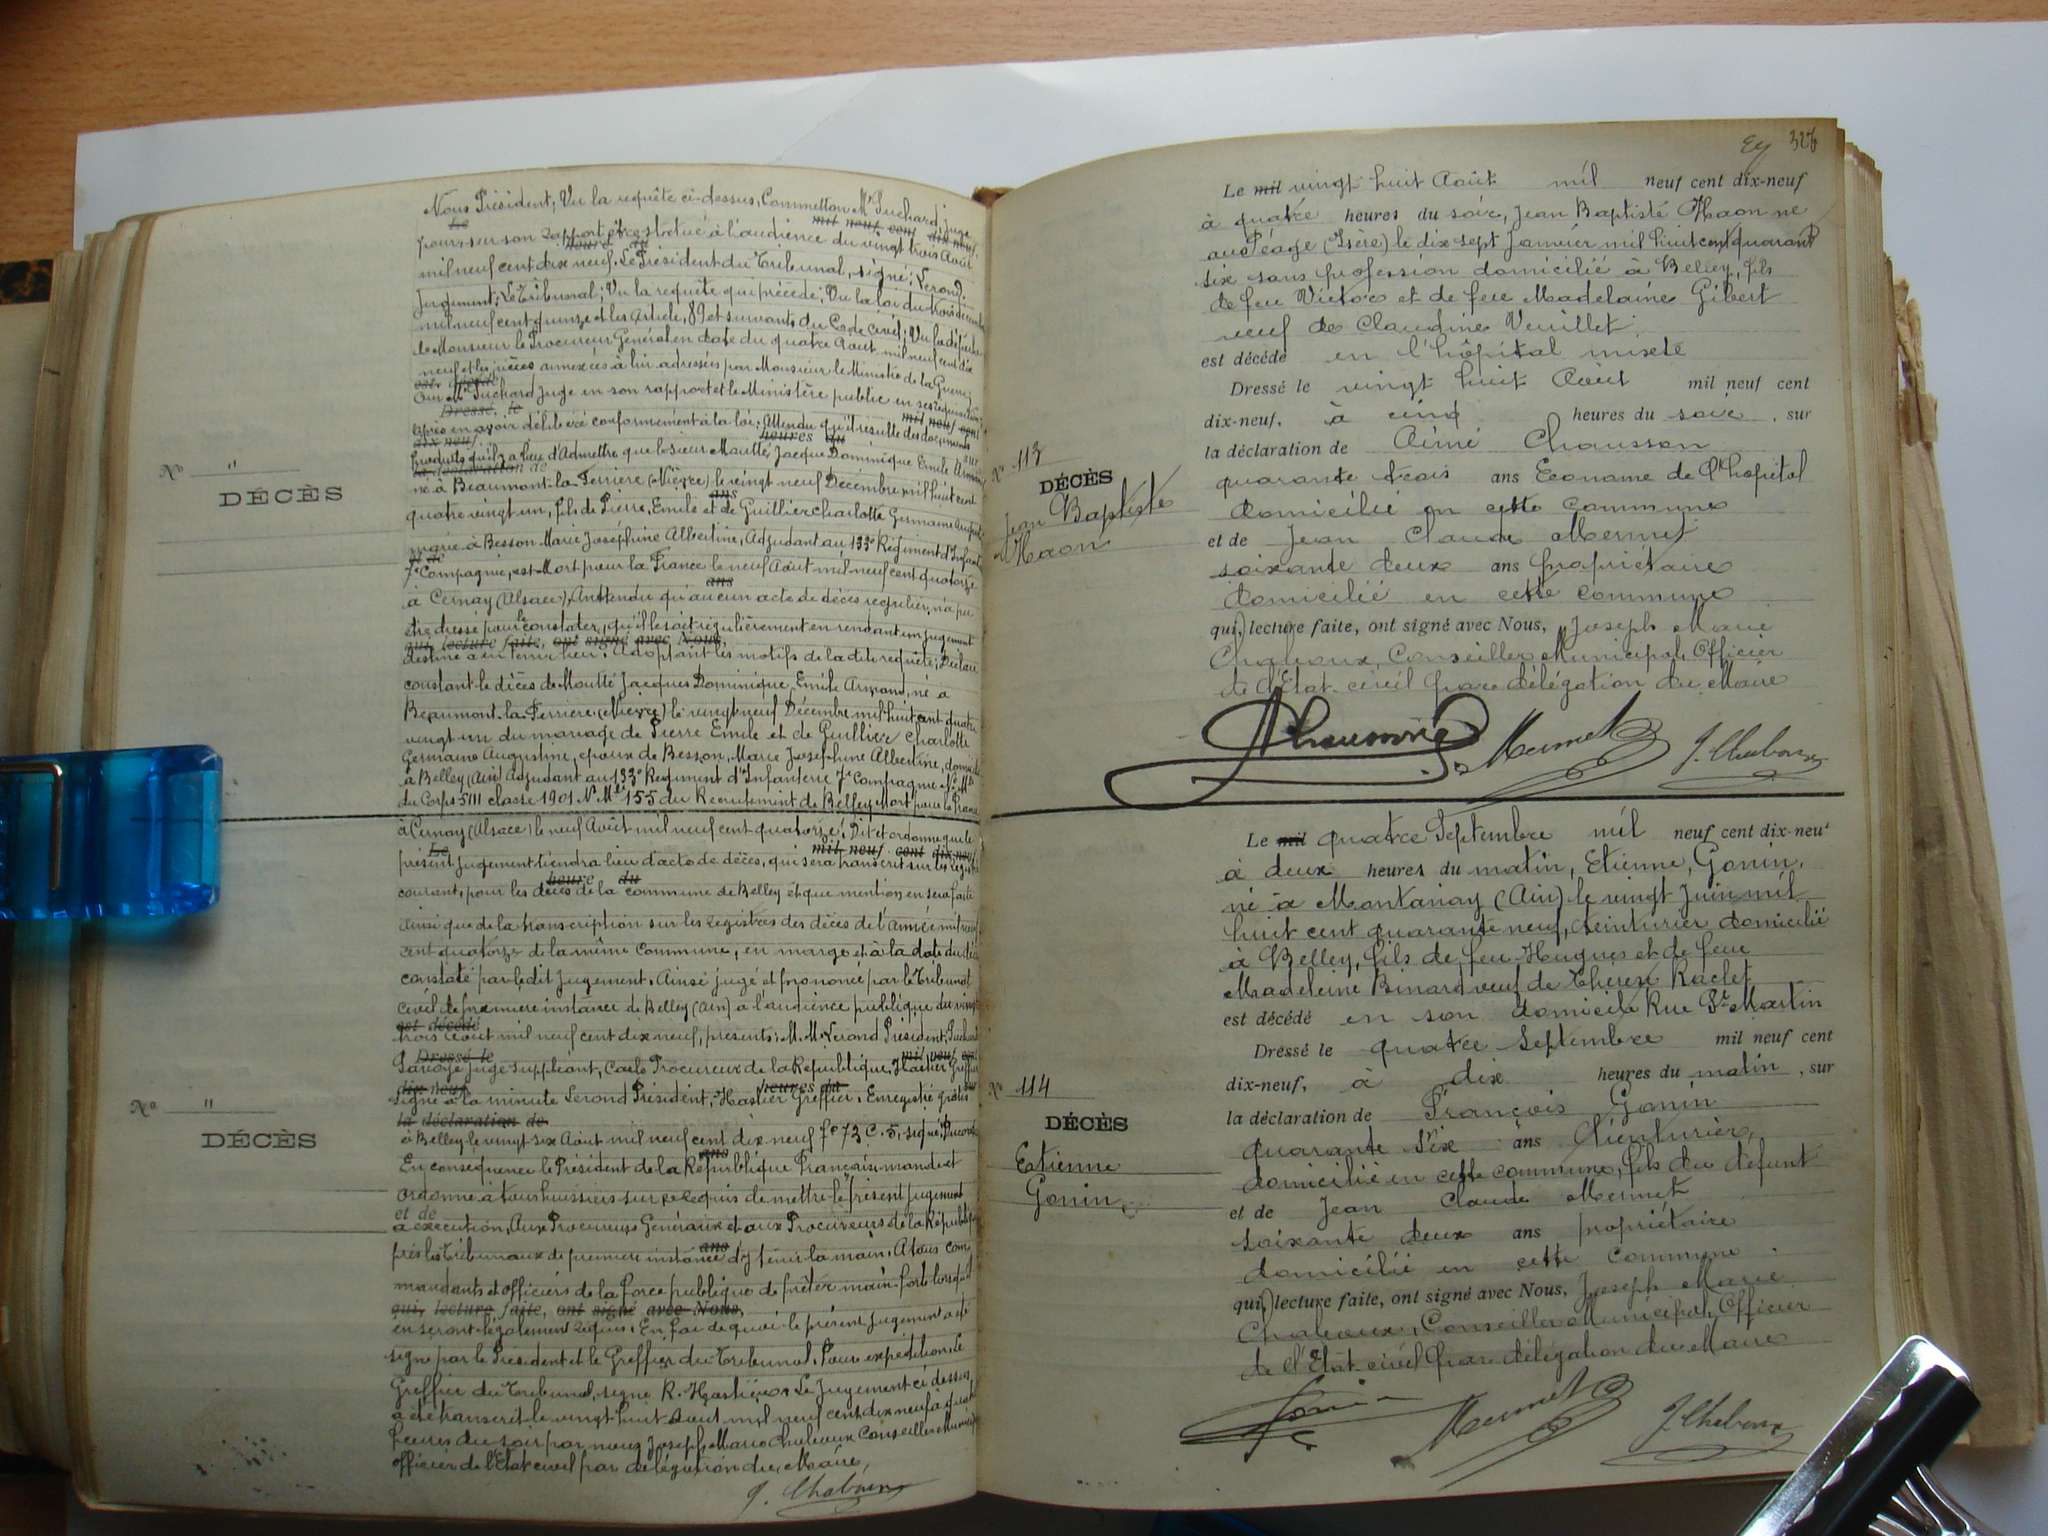 Nous Président, Vu la requête ci-dessus, Commettons Mr Suchard juge
Le mil neuf cent dix-neuf
pour, sur son rapport être statué à l'audience du vingt trois Août
heures du
mil neuf cent dix neuf. Le Président du Tribunal, signé: Lerond.
Jugement: Le Tribunal; Vu la requête qui précède; Vu la loi du trois décembre
mil neuf cent quinze et les Article, 89 et suivants du Code civil; Vu la dépêche
de Monsieur le Procureur Général en date du quatre Août mil neuf cent dix
neuf et les pièces annexées à lui adressées par Monsieur le Ministre de la Guerre;
est décédé
Oui Mr Suchard Juge en son rapport et le Ministère public en ses réquisitions
Dressé le mil neuf cent
après en avoir délibéré conformément à la loi; Attendu qu'il résulte des documents
dix-neuf, heures du sur
produits qu'il y a lieu d'Admettre que le sieur Moutté Jacques Dominique Emile Armand
la déclaration de
né à Beaumont-la-Ferrière (Nièvre) le vingt neuf Décembre mil huit cent
ans
quatre vingt un, fils de Pierre, Emile et de Guillier Charlotte Germaine August
marié à Besson Marie Joséphine Albertine, Adjudant au 133e Régiment d'Infant
et de
7e Compagnie, est Mort pour la France le neuf Août mil neuf cent quatorze
ans
à Cernay (Alsace), Attendu qu'aucun acte de décès régulier, n'a pu
être dressé pour le constater, qu'il le soit régulièrement en rendant un jugement
qui, lecture faite, ont signé avec Nous,
destiné à en tenir lieu. Adoptant les motifs de la dite requête; Déclare
constant le décès de Moutté Jacques Dominique, Emile Armand, né à
Beaumont-la-Ferrière (Nièvre) le vingt neuf Décembre mil huit cent quatre
vingt un du mariage de Pierre Emile et de Guillier Charlotte
Germaine Augustine, époux de Besson, Marie Joséphine Albertine, domicilié
à Belley (Ain) Adjudant au 133e Régiment d'Infanterie 7e Compagnie, No Mle
du Corps 5111 classe 1901 No Mle 155 du Recrutement de Belley Mort pour la France
à Cernay (Alsace) le neuf Août mil neuf cent quatorze; Dit et ordonne que le
Le mil neuf cent dix-neuf
présent jugement tiendra lieu d'acte de décès, qui sera transcrit sur les registres
heure du
courant, pour les décès de la commune de Belley et que mention en sera faite
ainsi que de la transcription sur les registres des décès de l'année mil neuf
cent quatorze de la même commune, en marge et à la date du décès
constaté par ledit jugement. Ainsi jugé et prononcé par le Tribunal
civil de première instance de Belley (Ain) à l'audience publique du vingt
est décédé
trois Août mil neuf cent dix neuf, présents: M.M. Lerond Président, Suchard
Dressé le mil neuf cent
juge suppléant, Procureur de la République, Hastier Greffier
dix-neuf, heures du sur
signé à la minute Lerond Président, Hastier Greffier. Enregistré gratis
la déclaration de
à Belley le vingt six Août mil neuf cent dix neuf fo 73 C. 5, signé,
ans
En conséquence le Président de la République Française mande et
ordonne à tous huissiers sur ce requis de mettre le présent jugement
et de
à exécution, Aux Procureurs Généraux et aux Procureurs de la République
ans
près les Tribunaux de première instance d'y tenir la main, A tous com
mandants et officiers de la force publique de prêter main forte lorsqu'ils
qui, lecture faite, ont signé avec Nous,
en seront légalement requis. En foi de quoi le présent jugement a été
signé par le Président et le Greffier du Tribunal. Pour expédition. Le
Greffier du Tribunal, signé R. Hastier. Le Jugement ci dessus
a été transcrit le vingt huit Août mil neuf cent dix neuf à quatre
heures du soir par nous Joseph Marie Chaboux Conseiller Municipal
officier de l'Etat civil par délégation du Maire,
J. Chaboux
No "
DÉCÈS
No "
DÉCÈS
326
Le mil vingt huit Août mil neuf cent dix-neuf
à quatre heures du soir, Jean Baptiste Haon né
au Péage (Isère) le dix sept Janvier mil huit cent quarante
six sans profession domicilié à Belley, fils
de feu Victor et de feue Madelaine Gibert
veuf de Claudine Vuillet
est décédé en l'hôpital mixte
Dressé le vingt huit Août mil neuf cent
dix-neuf, à cinq heures du soir, sur
la déclaration de Aimé Chausson
quarante trois ans Econame de l'hôpital
domicilié en cette commune
et de Jean Claude Mermet
soixante deux ans propriétaire
domicilié en cette commune
qui, lecture faite, ont signé avec Nous, Joseph Marie
Chaboux, Conseiller Municipal, Officier
de l'Etat-civil par délégation du Maire
Mermet J. Chaboux
No 113
DÉCÈS
Jean Baptiste
Haon
Le mil quatre Septembre mil neuf cent dix-neuf
à deux heures du matin, Etienne, Gonin,
né à Montanay (Ain) le vingt Juin mil
huit cent quarante neuf, teinturier domicilié
à Belley, fils de feu Hugues et de feue
Madeleine Binard veuf de Thérèse Raclet
est décédé en son domicile Rue St Martin
Dressé le quatre Septembre mil neuf cent
dix-neuf, à dix heures du matin, sur
la déclaration de François Gonin
quarante six ans Teinturier,
domicilié en cette commune, fils du défunt
et de Jean Claude Mermet
soixante deux ans propriétaire
domicilié en cette commune.
qui, lecture faite, ont signé avec Nous, Joseph Marie
Chaboux, Conseiller Municipal, Officier
de l'Etat-civil par délégation du Maire
Gonin Mermet J. Chaboux
No 114
DÉCÈS
Etienne
Gonin